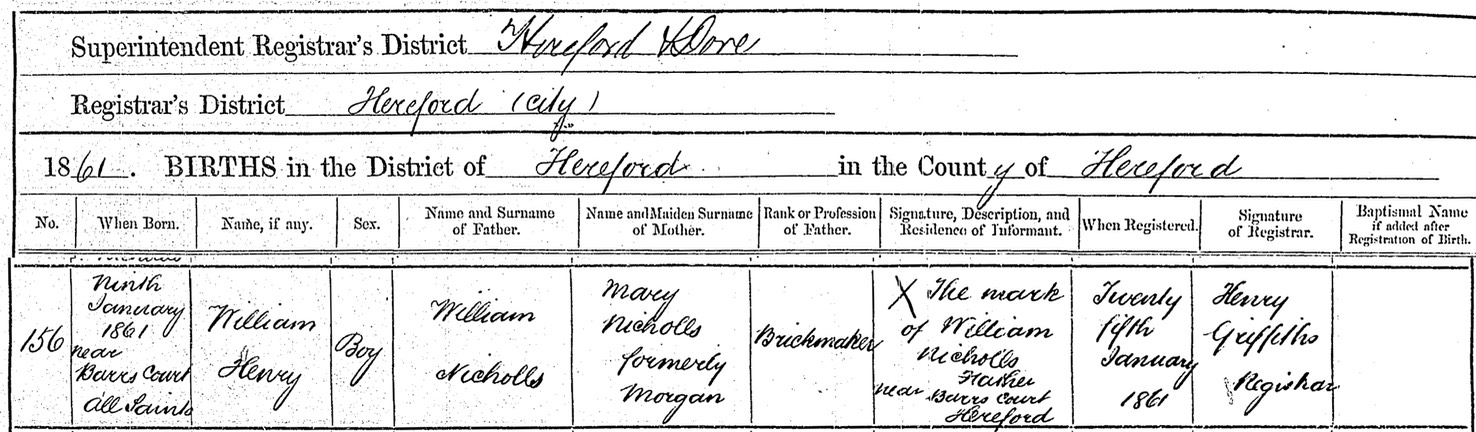 Superintendent Registrar's District Hereford & Dore
Registrar's District Hereford (City)
1861. BIRTHS in the District of Hereford in the County of Hereford
No.
When Born.
Name, if any.
Sex.
Name and Surname
of Father.
Name and Maiden Surname
of Mother.
Rank or Profession
of Father.
Signature, Description, and
Residence of Informant.
When Registered.
Signature
of Registrar.
Baptismal Name
if added after
Registration of Birth.
156
Ninth
January
1861
near
Barrs Court
All Saints
William
Henry
Boy
William
Nicholls
Mary
Nicholls
formerly
Morgan
Brickmaker
X The mark
of William
Nicholls
Father
near Barrs Court
Hereford
Twenty
fifth
January
1861
Henry
Griffiths
Registrar